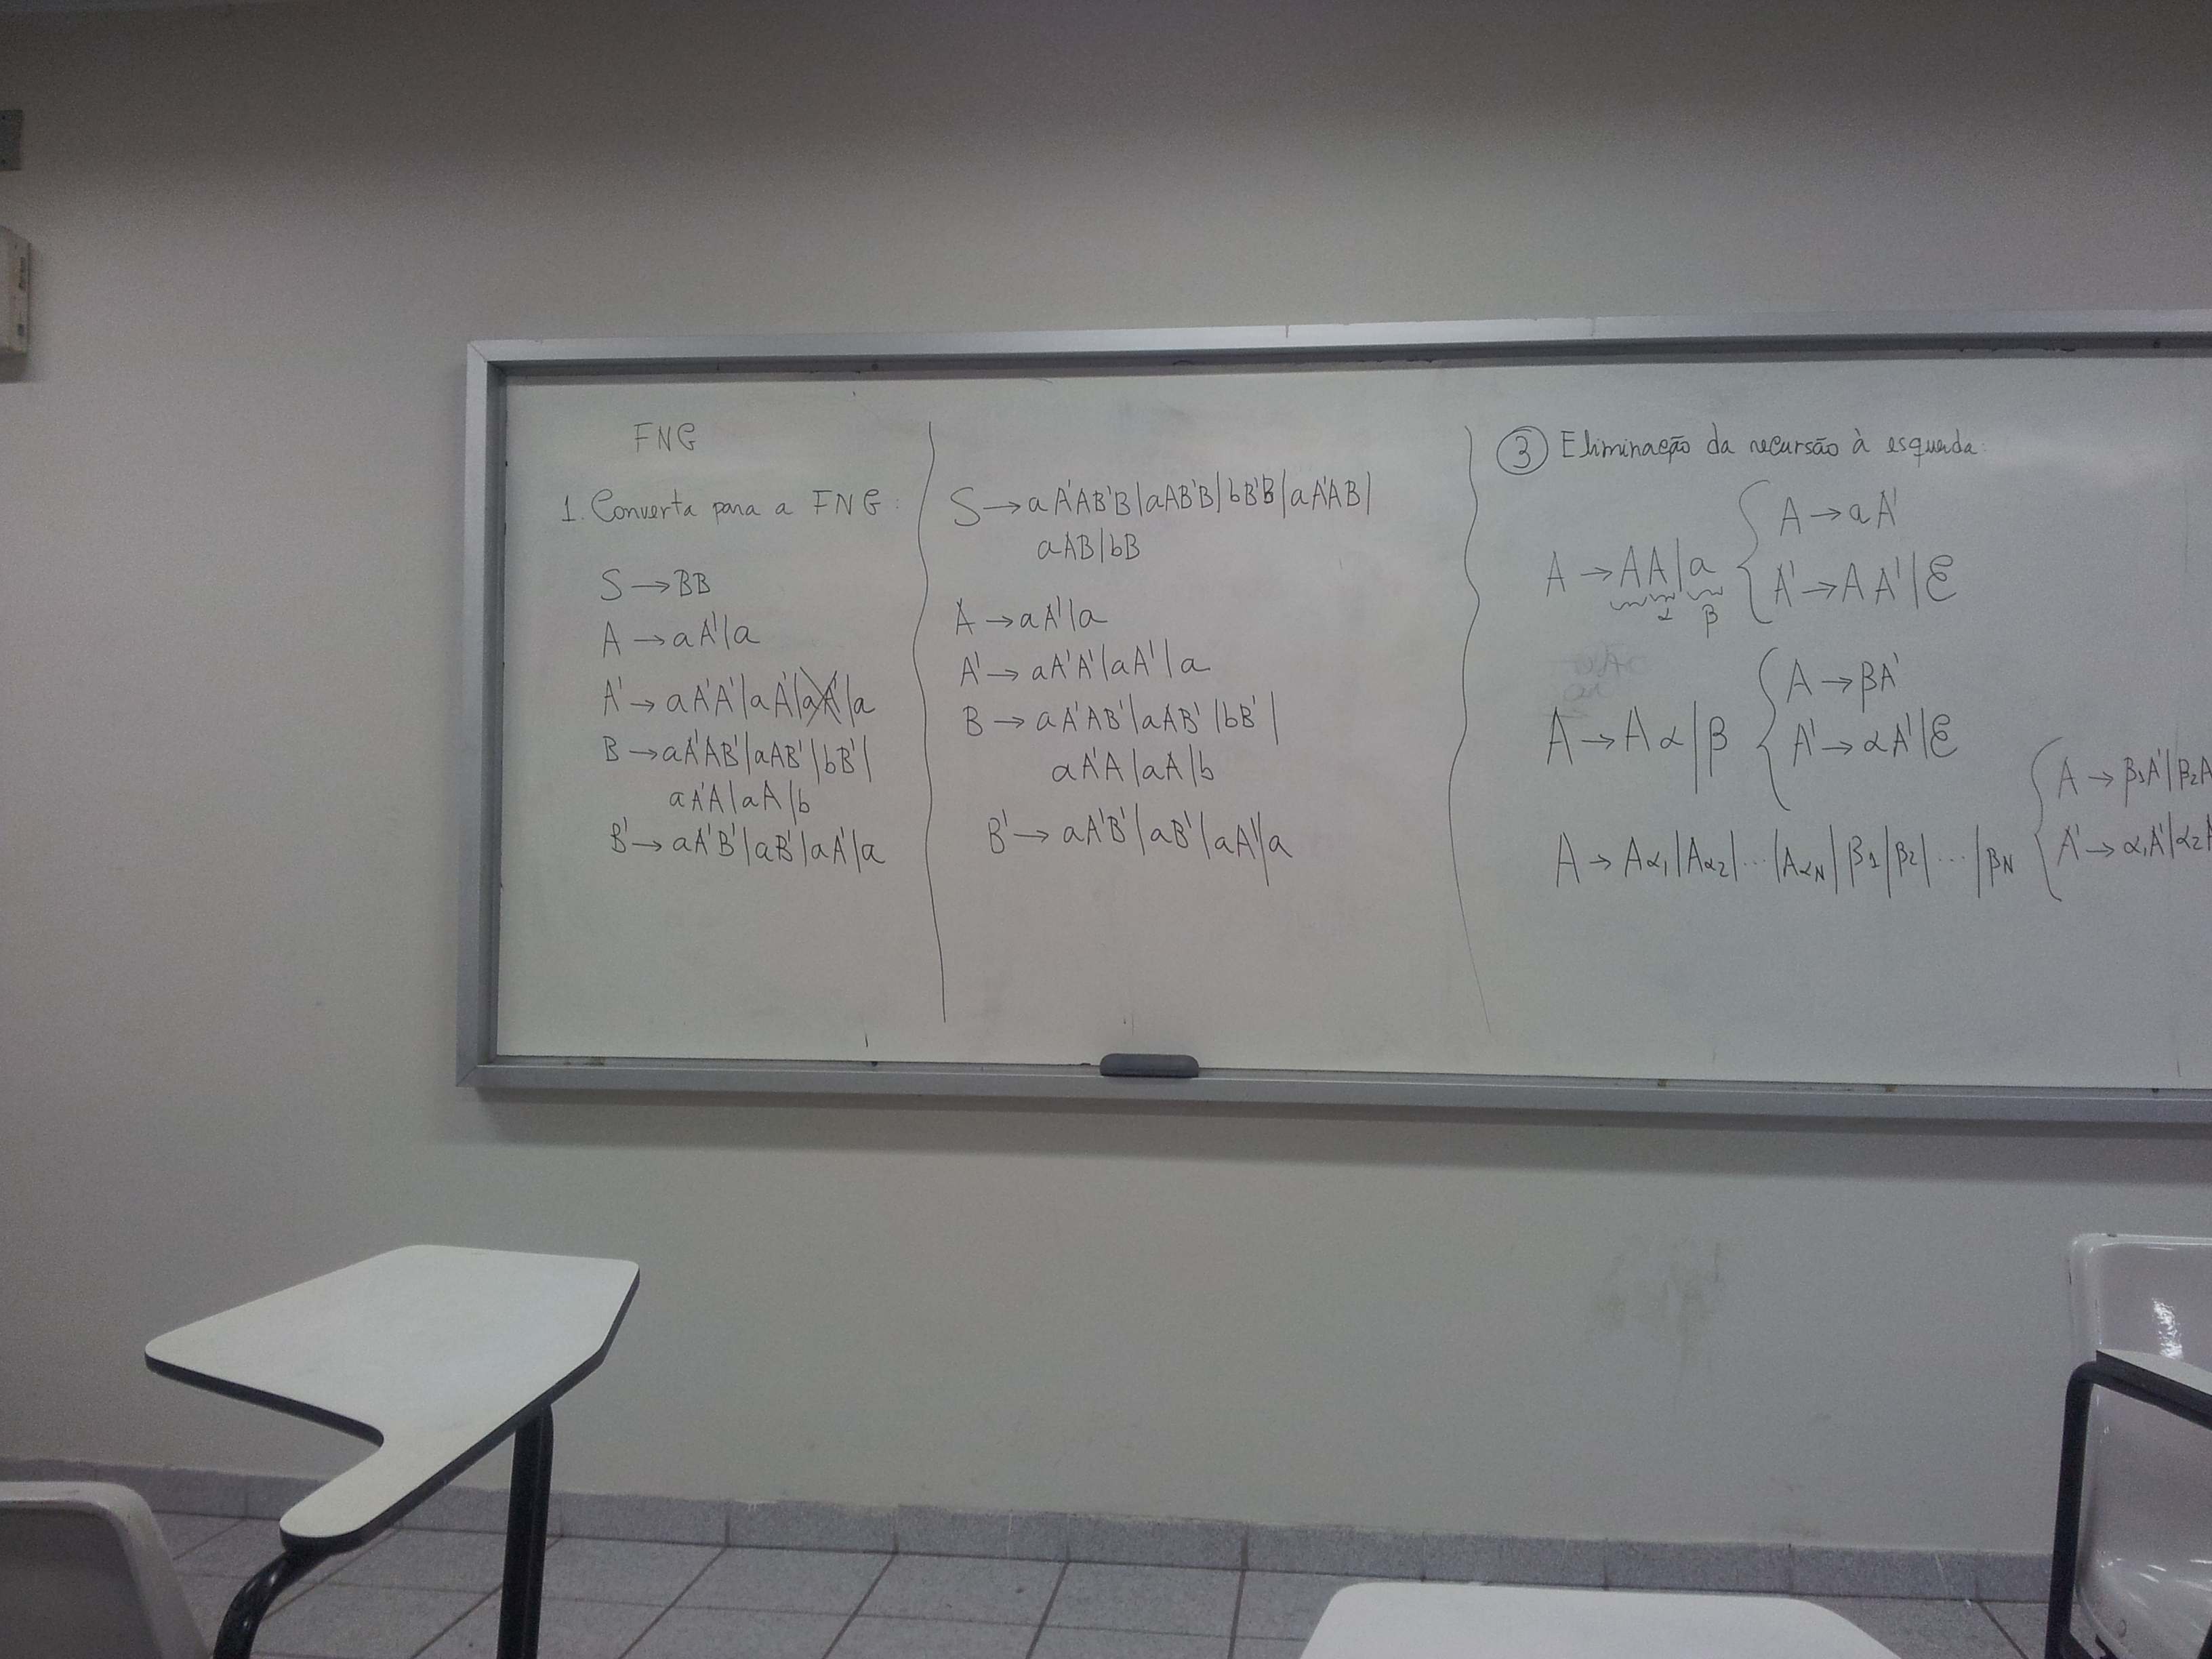 FNG
1. Converta para a FNG:
S → BB
A → aA'|a
A' → aA'A'|aA'|aA'|a
B → aA'AB'|aAB'|bB'|
aA'A|aA|b
B' → aA'B'|aB'|aA'|a
S → aA'AB'B|aAB'B|bB'B|aA'AB|
aAB|bB
A → aA'|a
A' → aA'A'|aA'|a
B → aA'AB'|aAB'|bB'|
aA'A|aA|b
B' → aA'B'|aB'|aA'|a
③ Eliminação da recursão à esquerda:
A → AA|a
α β
A → aA'
A' → AA'|ε
A → Aα|β
A → βA'
A' → αA'|ε
A → Aα₁|Aα₂|...|Aαₙ|β₁|β₂|...|βₙ
A → β₁A'|β₂A
A' → α₁A'|α₂A